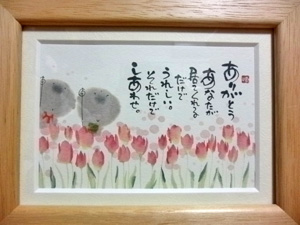 ありがとう
あなたが
居てくれる
だけで
うれしい。
それだけで
しあわせ。